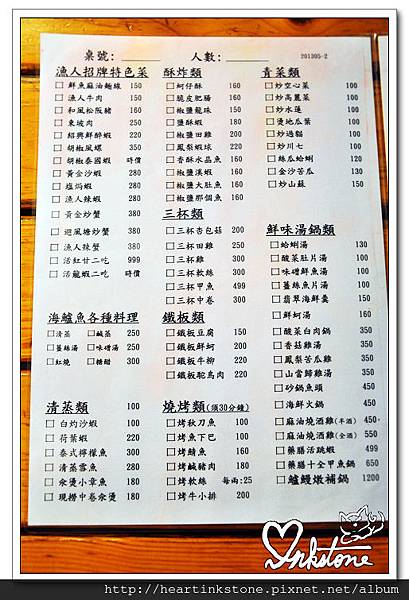 桌號: 人數: 201305-2
漁人招牌特色菜
□鮮魚麻油麵線 150
□漁人牛肉 150
□和風松阪豬 160
□東坡肉 250
□紹興鮮醉蝦 220
□胡椒風螺 350
□胡椒泰國蝦 時價
□黃金沙蝦 280
□塩焗蝦 380
□漁人辣蝦 280
□黃金炒蟹 380
□避風塘炒蟹 380
□漁人辣蟹 380
□活紅甘二吃 999
□活龍蝦二吃 時價
海鱸魚各種料理
□清蒸 □鹹蒸 250
□薑絲湯 □味磳湯 250
□紅燒 □糖醋 300
清蒸類 100
□白灼沙蝦 100
□荷葉蝦 220
□泰式檸檬魚 300
□清蒸雪魚 280
□汆燙小章魚 180
□現撈中卷汆燙 180
酥炸類
□蚵仔酥 160
□脆皮肥腸 160
□椒鹽龍珠 150
□鹽酥蝦 180
□椒鹽田雞 200
□鳳梨蝦球 220
□香酥水晶魚 160
□椒鹽溪蝦 160
□椒鹽大肚魚 160
□椒鹽那個魚 160
三杯類
□三杯杏包菇 200
□三杯田雞 250
□三杯雞 300
□三杯軟絲 300
□三杯甲魚 499
□三杯中卷 300
鐵板類
□鐵板豆腐 150
□鐵板鮮蚵 200
□鐵板牛柳 220
□鐵板駝鳥肉 220
燒烤類(須30分鐘)
□烤秋刀魚 100
□烤魚下巴 100
□烤鯖魚 100
□烤鹹豬肉 180
□烤軟絲 每兩:25
□烤牛小排 200
青菜類
□炒空心菜 100
□炒高麗菜 100
□炒水蓮 100
□燙地瓜葉 100
□炒過貓 100
□炒川七 100
□絲瓜蛤蜊 120
□金沙苦瓜 130
□炒山蘇 150
鮮味湯鍋類
□蛤蜊湯 130
□酸菜肚片湯 150
□味磳鮮魚湯 150
□薑絲魚片湯 150
□翡翠海鮮羹 150
□鮮蚵湯 160
□酸菜白肉鍋 350
□香菇雞湯 350
□鳳梨苦瓜雞 350
□山當歸雞湯 350
□砂鍋魚頭 450
□海鮮火鍋 450
□麻油燒酒雞(半酒) 450
□麻油燒酒雞(全酒) 550
□藥膳活跳蝦 499
□藥膳十全甲魚鍋 650
□鱸鰻燉補鍋 1200
Inkstone
http://heartinkstone.pixnet.net/album